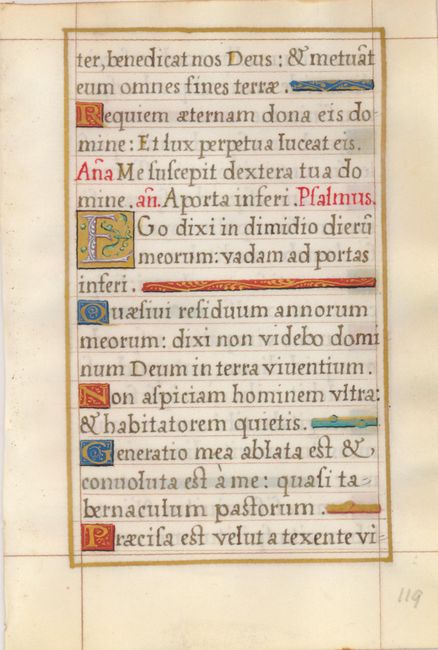 ter, benedicat nos Deus: & metuāt
eum omnes fines terræ.
Requiem æternam dona eis do-
mine: Et lux perpetua luceat eis.
Aña Me suscepit dextera tua do
mine. añ. A porta inferi. Psalmus.
EGo dixi in dimidio dierū
meorum: vadam ad portas
inferi.
Quæsiui residuum annorum
meorum: dixi non videbo domi
num Deum in terra viuentium.
Non aspiciam hominem vltra:
& habitatorem quietis.
Generatio mea ablata est &
conuoluta est à me: quasi ta-
bernaculum pastorum.
Præcisa est velut a texente vi-
119